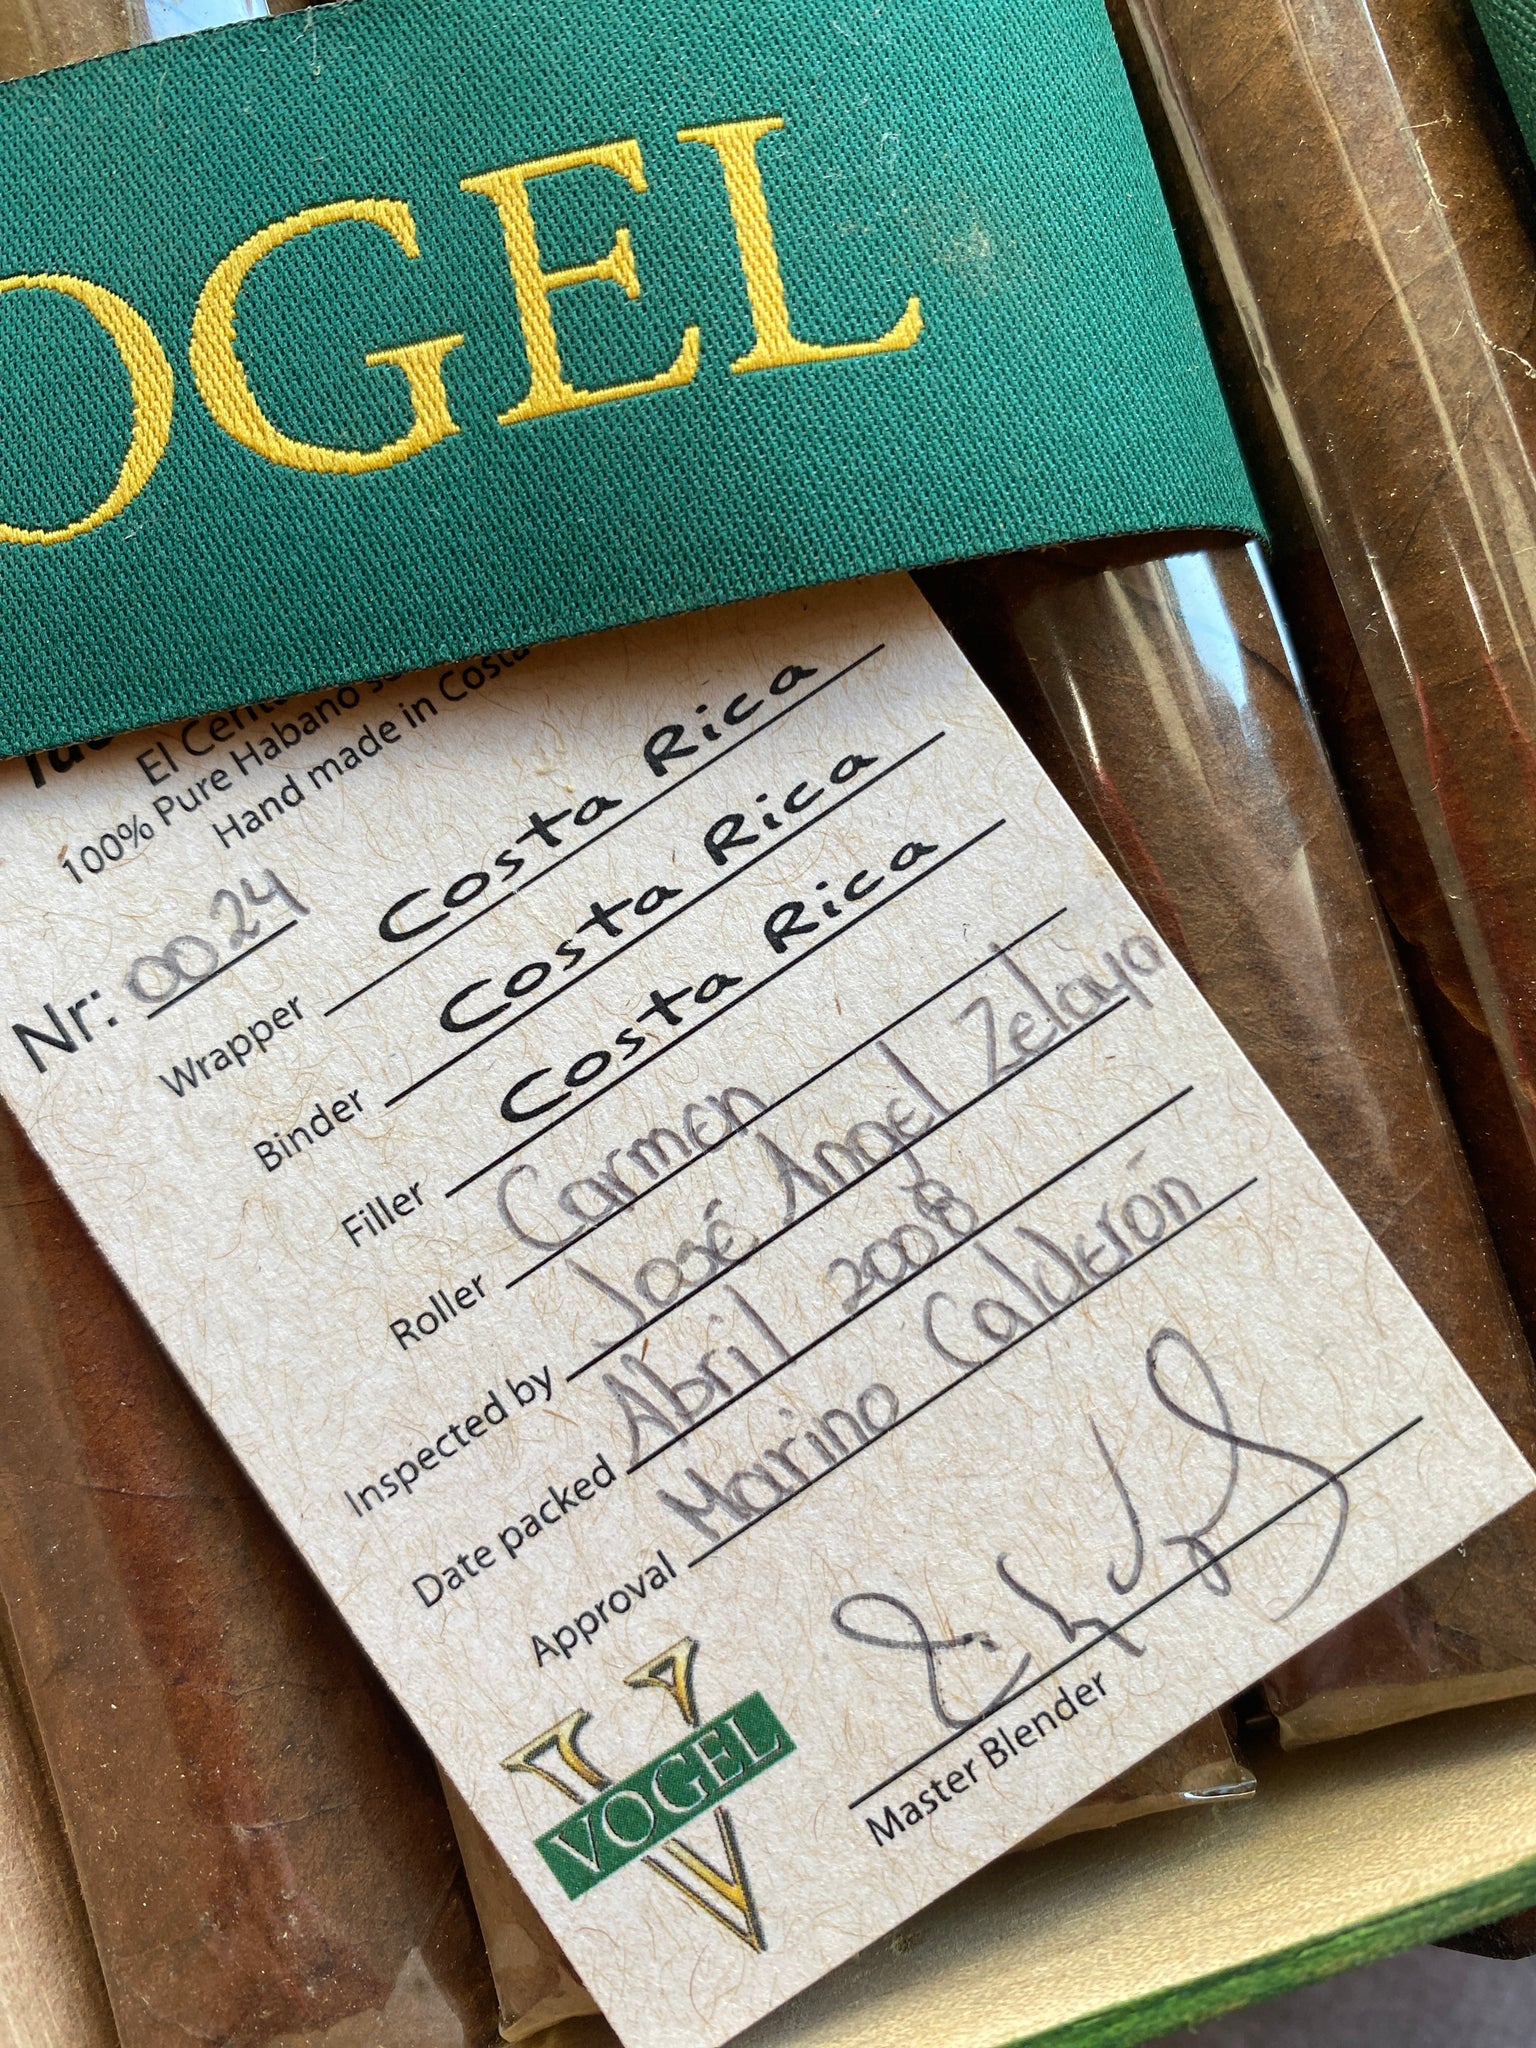 OGEL
El Cent
100% Pure Habano
Hand made in Costa
Nr: 0024
Wrapper Costa Rica
Binder Costa Rica
Filler Costa Rica
Roller Carmen
Inspected by José Ángel Zelaya
Date packed Abril 2008
Approval Marino Calderón
Master Blender
VOGEL